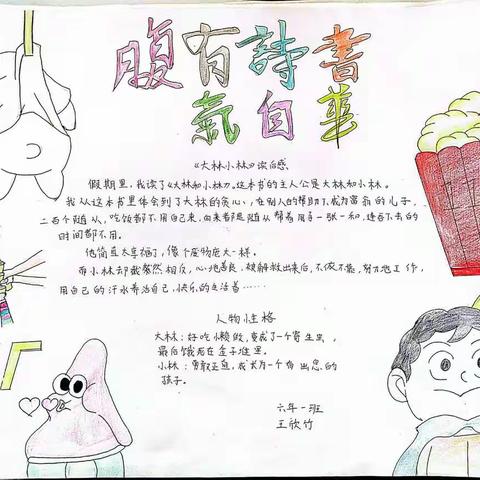 腹有詩書
氣自華
《大林小林》读后感
假期里，我读了《大林和小林》。这本书的主人公是大林和小林。
我从这本书里体会到了大林的贪心，在别人的帮助下，成为富翁的儿子，
二百个随从，吃饭都不用自己来，由来都是随从帮着用手一张一和，连
时间都不用。
他简直太享福了，像个废物庞大一样。
而小林却截然相反，心地善良，被解救出来后，不依不靠，努力地工作，
用自己的汗水养活自己，快乐的生活着……
人物性格
大林：好吃懒做，变成了一个寄生虫，
最后饿死在金子堆里。
小林：勇敢正直，成长为一个有出息的
孩子。
六年一班
王欣竹